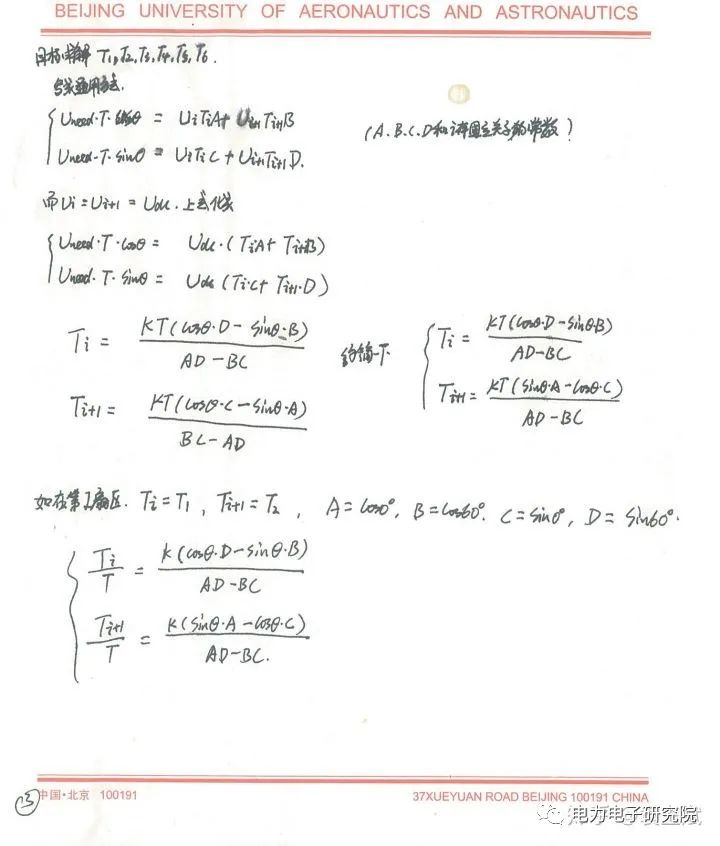 BEIJING UNIVERSITY OF AERONAUTICS AND ASTRONAUTICS
目标:求解 T1,T2,T3,T4,T5,T6.
通用方法.
Uneed·T·cosθ = UiTiA + Ui+1Ti+1B
Uneed·T·sinθ = UiTiC + Ui+1Ti+1D.
(A.B.C.D和 常数)
而Ui=Ui+1=Udc.上式化为
Uneed·T·cosθ = Udc·(TiA+Ti+1B)
Uneed·T·sinθ = Udc(Ti·C+Ti+1·D)
Ti = KT(cosθ·D-sinθ·B)/AD-BC
Ti+1 = KT(cosθ·C-sinθ·A)/BC-AD
一下
Ti = KT(cosθ·D-sinθB)/AD-BC
Ti+1 = KT(sinθ·A-cosθ·C)/AD-BC
如在第I扇区. Ti=T1, Ti+1=T2, A=cos0°, B=cos60°. C=sin0°, D=sin60°.
Ti/T = K(cosθ·D-sinθ·B)/AD-BC
Ti+1/T = K(sinθ·A-cosθ·C)/AD-BC.
③
中国·北京 100191
37XUEYUAN ROAD BEIJING 100191 CHINA
电力电子研究院